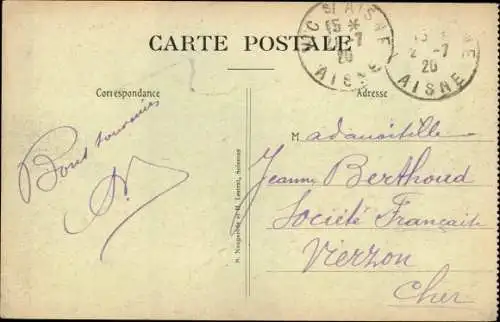 VIC S/ AISNE
15 *
-7
20
AISNE
15
2 -7
20
AISNE
CARTE POSTALE
Correspondance
Adresse
Bons souvenirs
Madamoiselle
Jeanne Berthoud
Société Française
Vierzon
Cher